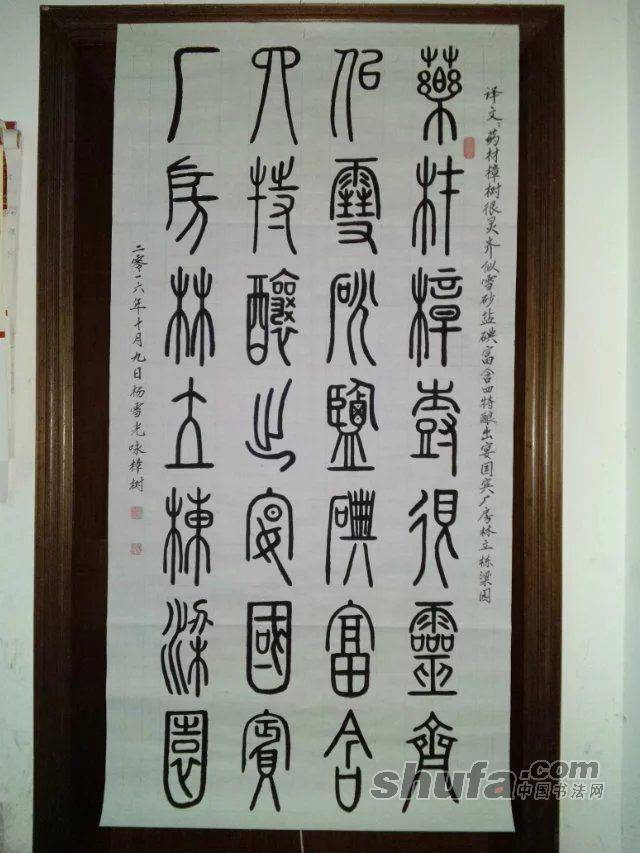 译文：药材樟树很灵齐似雪砂盐碘富含四特酿出宴国宾厂房林立栋梁园
藥材樟樹很靈齊
似雪砂鹽碘富含
四特釀出宴國賓
厂房林立棟梁園
二零一六年十月九日杨雪光咏樟树
shufa.com
中国书法网